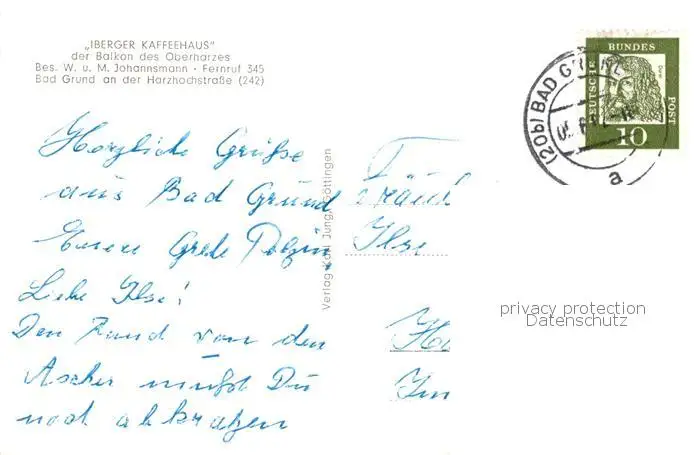 „IBERGER KAFFEEHAUS"
der Balkon des Oberharzes
Bes. W. u. M. Johannsmann · Fernruf 345
Bad Grund an der Harzhochstraße (242)
Herzliche Grüße
aus Bad Grund
Euere Grete
Liebe Ilse!
Den Rand von den
Ascher mußt Du
noch abkratzen
Verlag Karl Jung, Göttingen
Fräul
Ilse
Ha
Im
DEUTSCHE
BUNDES
POST
Dürer
10
(20b) BAD GRUND
a
privacy protection
Datenschutz